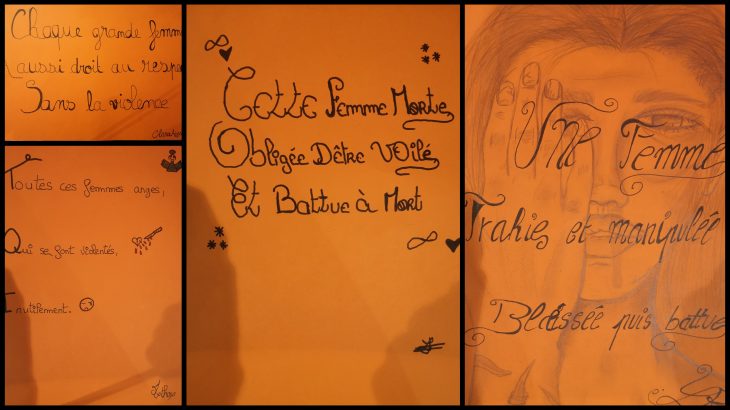 Chaque grande femm
aussi droit au respe
Sans la violence
Toutes ces femmes anges,
Qui se font violentés,
Inutilement.
CETTE Femme Morte,
Obligée D'être VOilé
Et Battue à Mort
Une Femme
Trahies et manipulée
Blessée puis battue